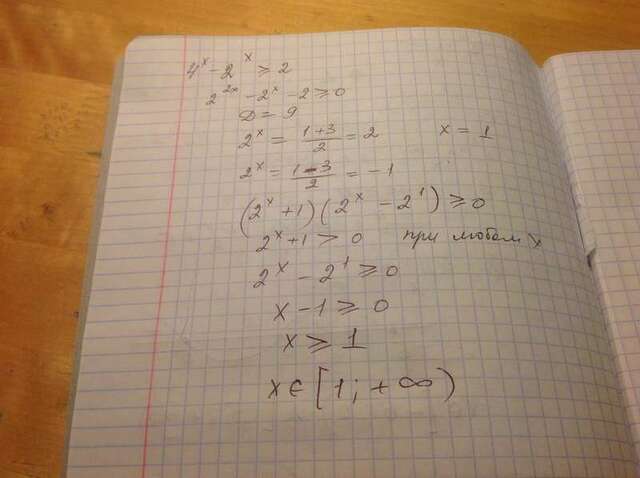 4^x - 2^x ⩾ 2
2^2x - 2^x - 2 ⩾ 0
D = 9
2^x = (1+3)/2 = 2 x = 1
2^x = (1-3)/2 = -1
(2^x + 1)(2^x - 2^1) ⩾ 0
2^x + 1 > 0 при любом x
2^x - 2^1 ⩾ 0
x - 1 ⩾ 0
x ⩾ 1
x ∈ [1; +∞)